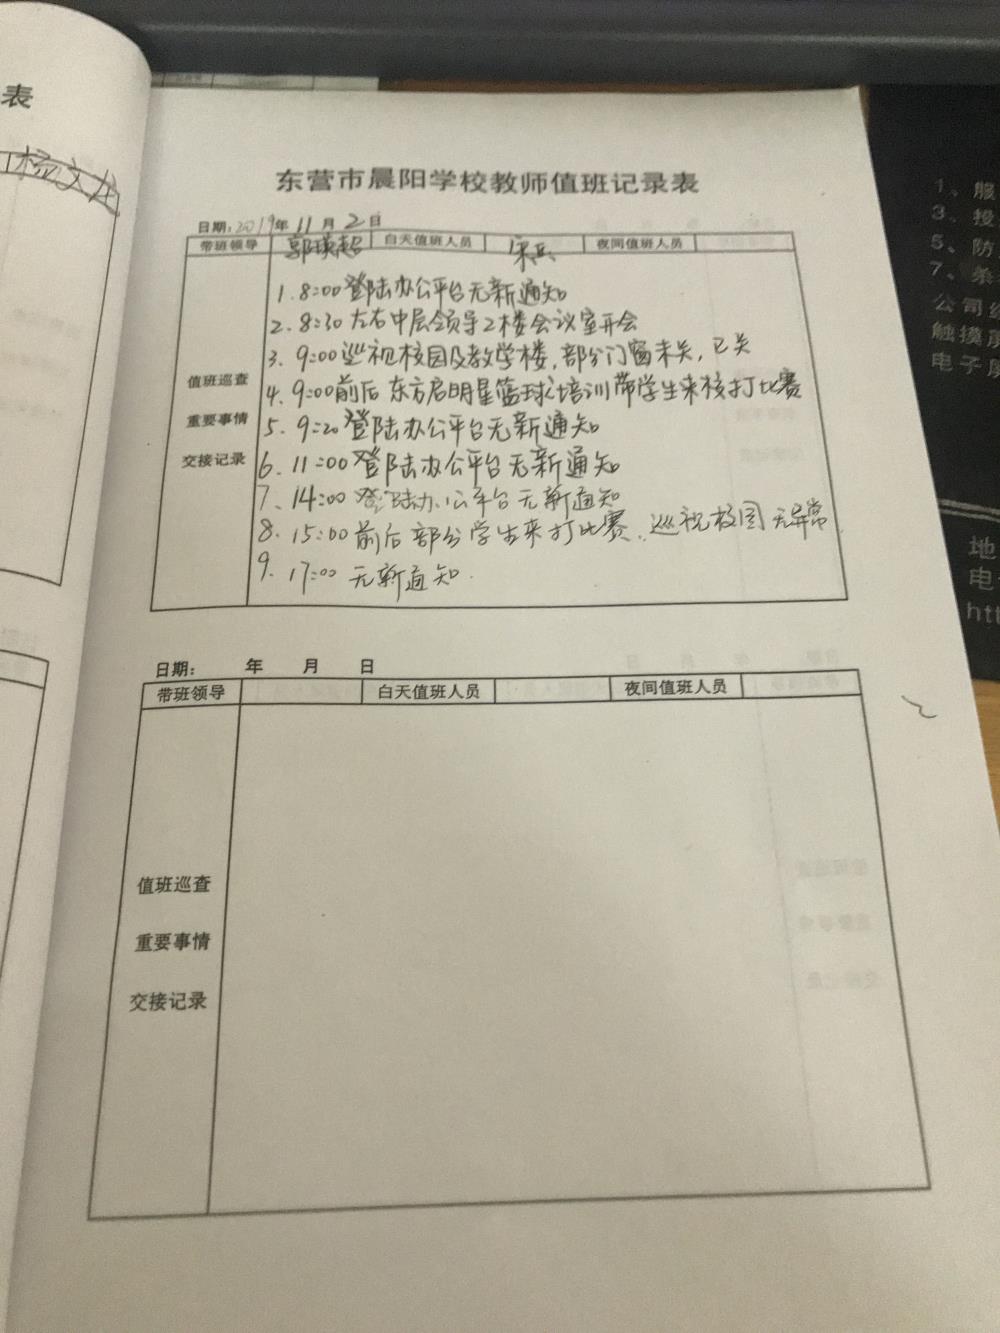 表
杨文龙
东营市晨阳学校教师值班记录表
日期:2019年 11 月 2 日
带班领导 郭瑛超 白天值班人员 宋兵 夜间值班人员
1. 8:00登陆办公平台无新通知
2. 8:30左右中层领导2楼会议室开会
3. 9:00巡视校园及教学楼,部分门窗未关,已关
值班巡查
4. 9:00前后东方启明星篮球培训带学生来校打比赛
重要事情
5. 9:20登陆办公平台无新通知
交接记录
6. 11:00登陆办公平台无新通知
7. 14:00登陆办公平台无新通知
8. 15:00前后部分学生来打比赛.巡视校园无异常
9. 17:00 无新通知.
日期: 年 月 日
带班领导 白天值班人员 夜间值班人员
值班巡查
重要事情
交接记录
1、服
3、投
5、防
7、条
公司
触摸
电子
地
电
htt